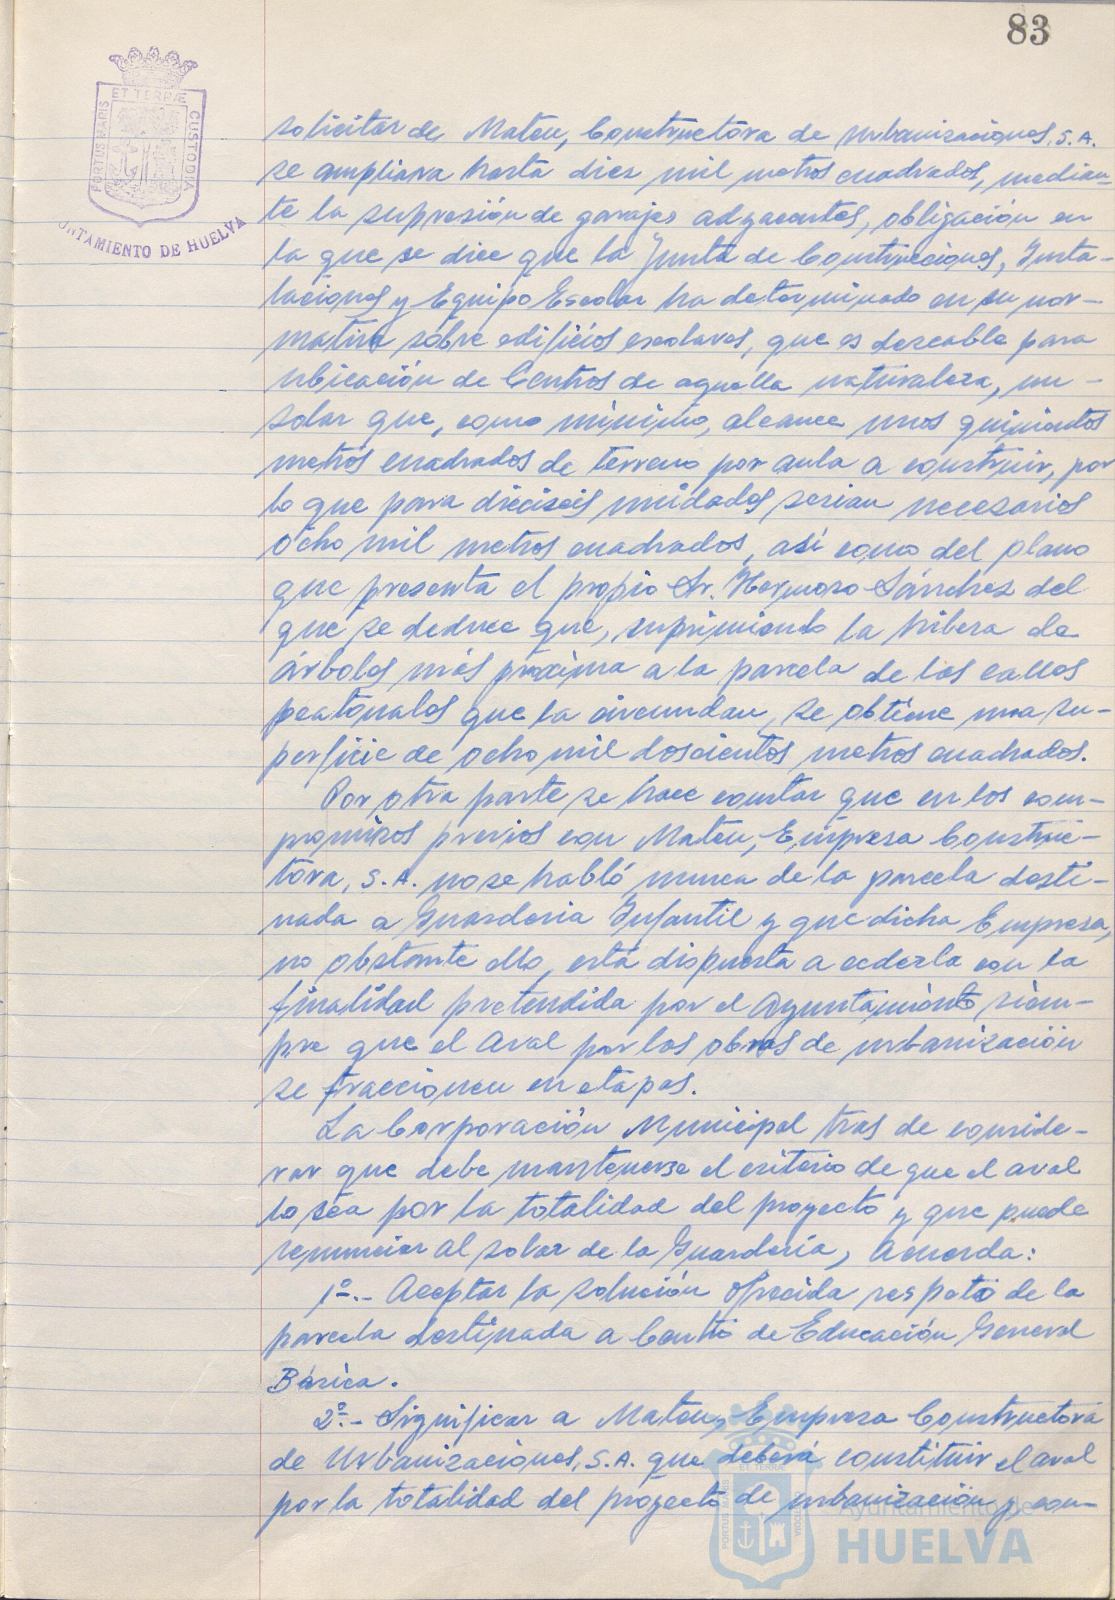 83
ET TERRÆ
PORTUS MARIS
CUSTODIA
UNTAMIENTO DE HUELVA
solicitar de Mateu, Constructora de Urbanizaciones, S.A.
se ampliara hasta diez mil metros cuadrados, median-
te la supresión de garajes adyacentes, obligación en
la que se dice que la Junta de Construcciones, Insta-
laciones y Equipo Escolar ha determinado en su nor-
mativa sobre edificios escolares, que es deseable para
ubicación de Centros de aquella naturaleza, un
solar que, como mínimo, alcance unos quinientos
metros cuadrados de terreno por aula a construir, por
lo que para dieciseis unidades serian necesarios
ocho mil metros cuadrados, así como del plano
que presenta el propio Sr. Hermoso Sánchez del
que se deduce que, suprimiendo la hilera de
árboles más próxima a la parcela de las calles
peatonales que la circundan, se obtiene una su-
perficie de ocho mil doscientos metros cuadrados.
Por otra parte se hace constar que en los com-
promisos previos con Mateu, Empresa Construc-
tora, S.A. no se habló nunca de la parcela desti-
nada a Guarderia Infantil y que dicha Empresa,
no obstante ello, está dispuesta a cederla con la
finalidad pretendida por el Ayuntamiento siem-
pre que el Aval por las obras de urbanización
se fraccionen en etapas.
La Corporación Municipal tras de conside-
rar que debe mantenerse el criterio de que el aval
lo sea por la totalidad del proyecto y que puede
renunciar al solar de la Guardería, Acuerda:
1º.- Aceptar la solución ofrecida respeto de la
parcela destinada a Centro de Educación General
Básica.
2º.- Significar a Mateu, Empresa Constructora
de Urbanizaciones, S.A. que deberá constituir el aval
por la totalidad del proyecto de urbanización y con-
ET TERRÆ
PORTUS MARIS
CUSTODIA
Ayuntamiento de
HUELVA